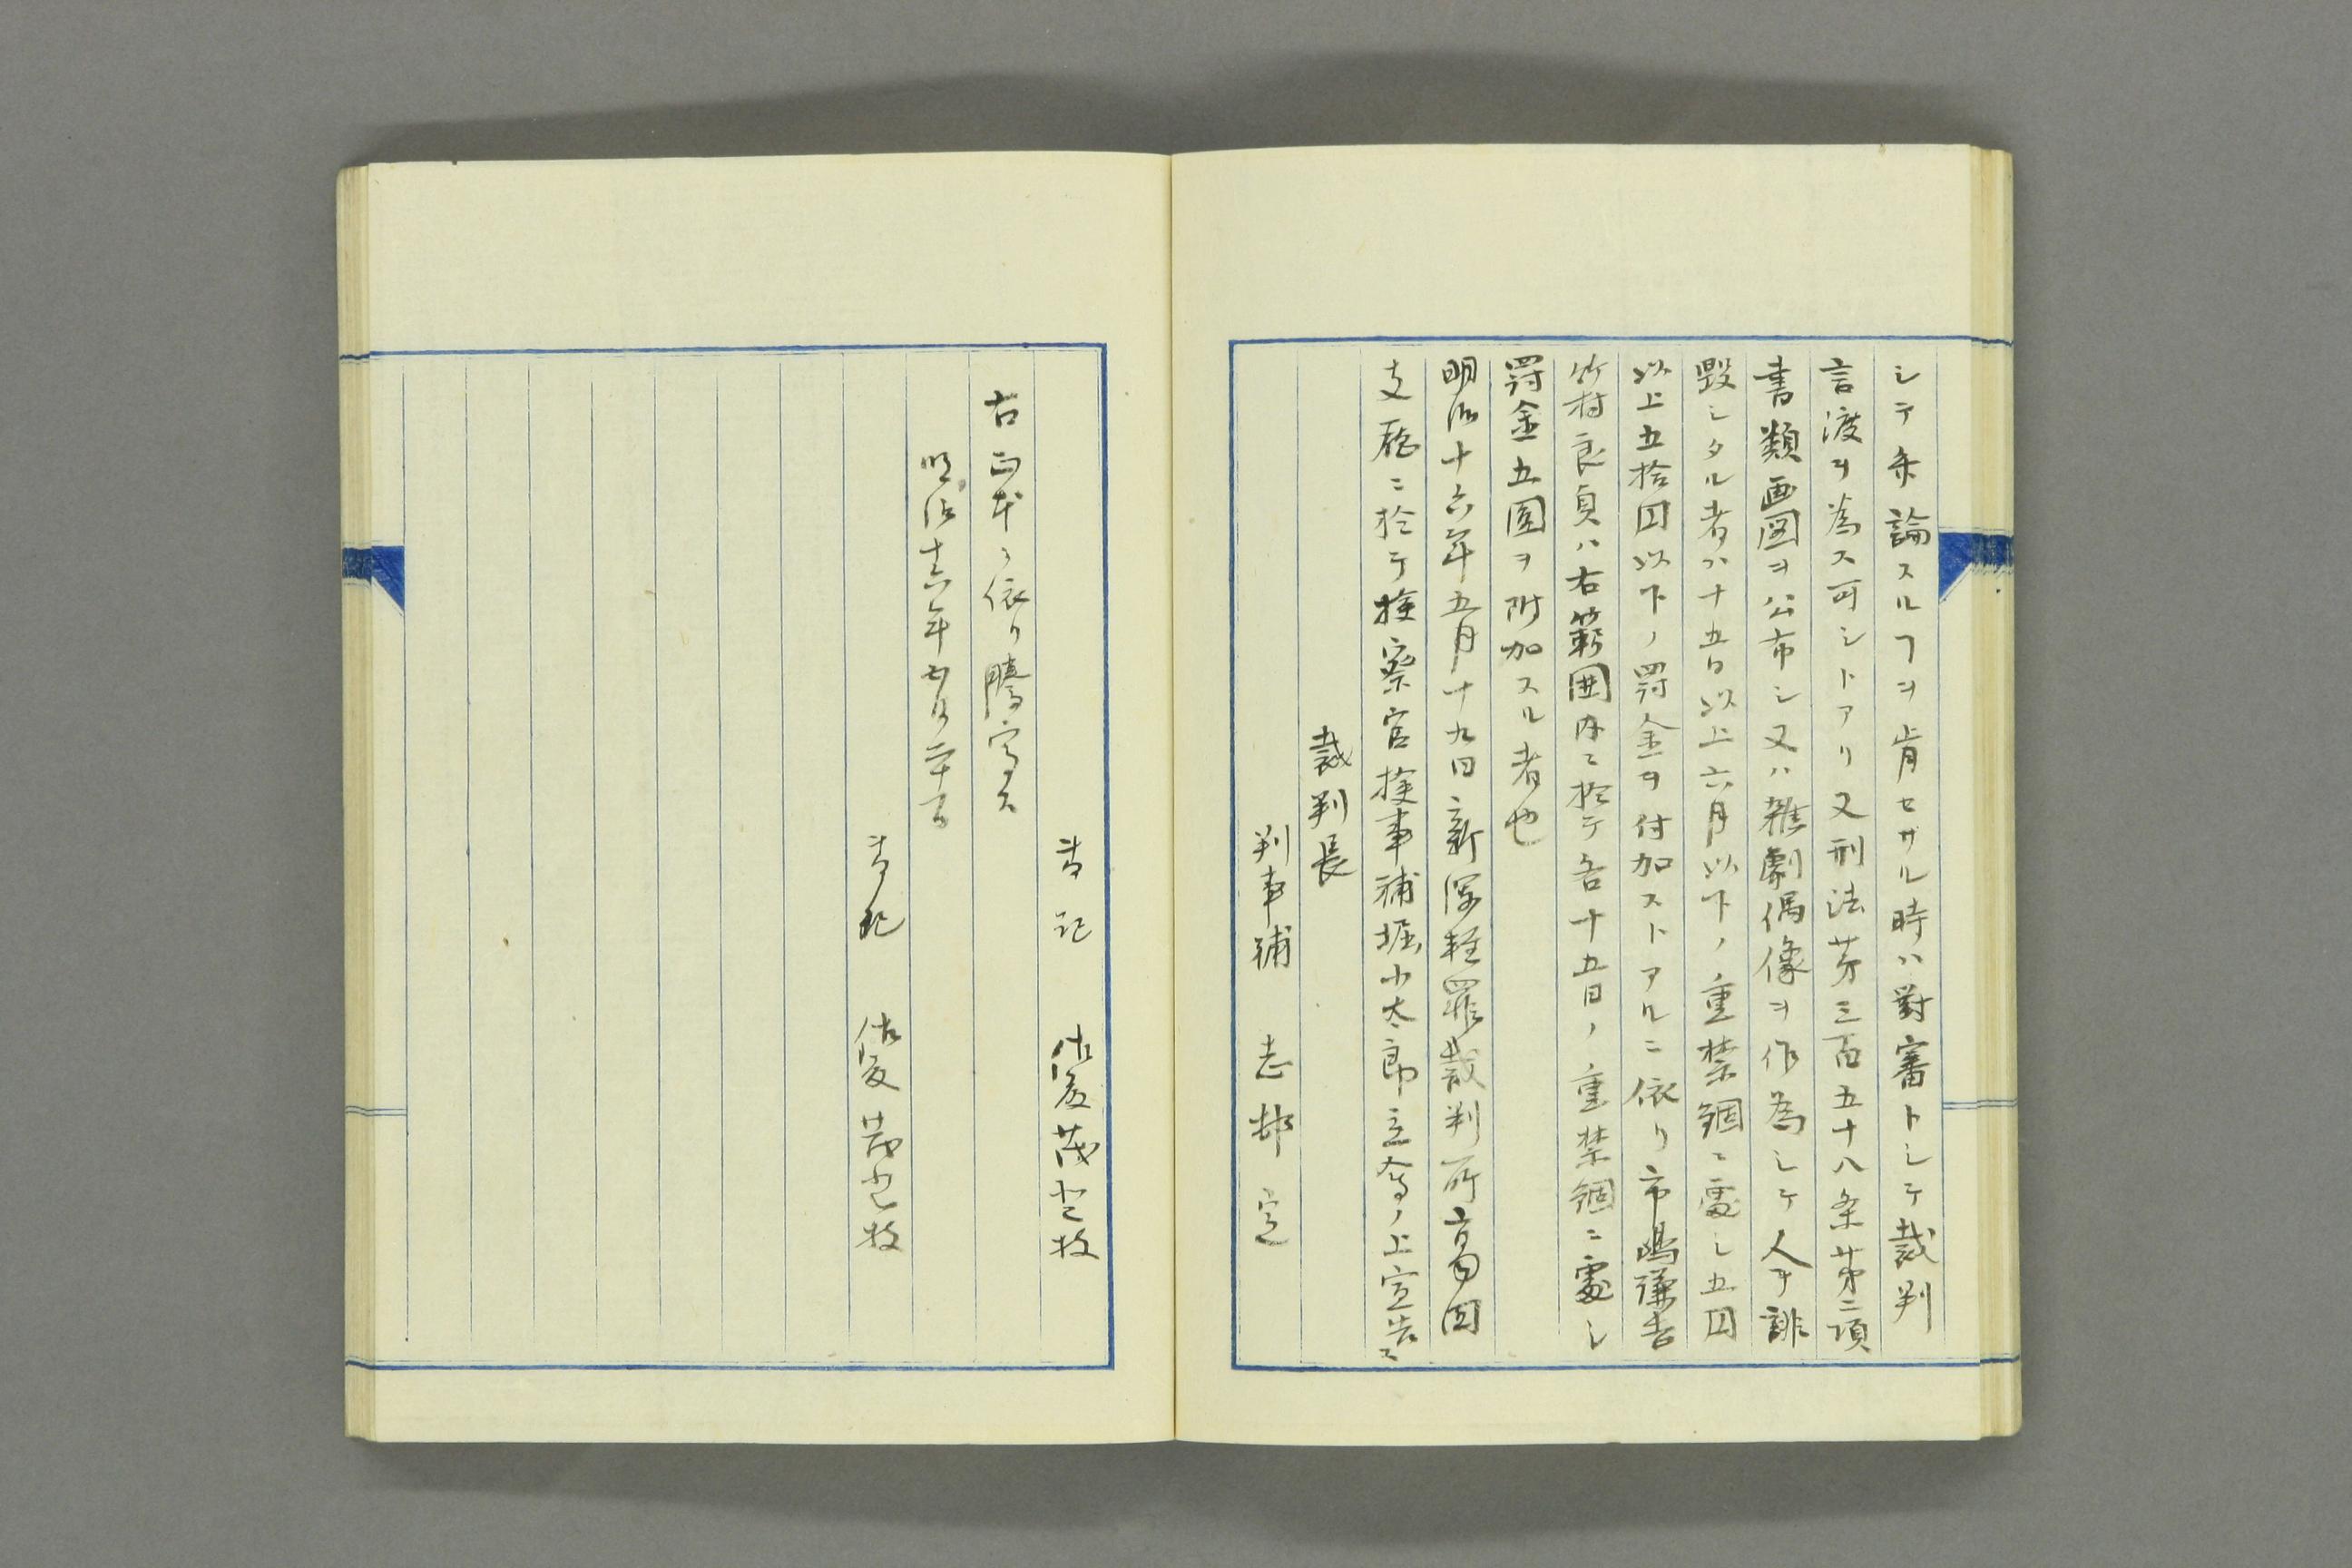 シテ弁論スルヿヲ肯セサル時ハ對審トシテ裁判
言渡ヲ為ス可シトアリ又刑法苐三百五十八条苐二項
書類画図ヲ公布シ又ハ雑劇偶像ヲ作為シテ人ヲ誹
毀シタル者ハ十五日以上六月以下ノ重禁錮ニ處シ五円
以上五拾円以下ノ罸金ヲ付加ストアルニ依リ市嶋謙吉
竹村良貞ハ右範囲内ニ於テ各十五日ノ重禁錮ニ處シ
罸金五圓ヲ附加スル者也
明治十六年五月十九日新潟軽罪裁判所高田
支廳ニ於テ検察官検事補堀小太郎立會ノ上宣告ス
裁判長
判事補 志邨 定
書記 佐藤茂登枝
右正本ニ依リ謄写ス
明治十六年五月二十日
書記 佐藤茂登枝